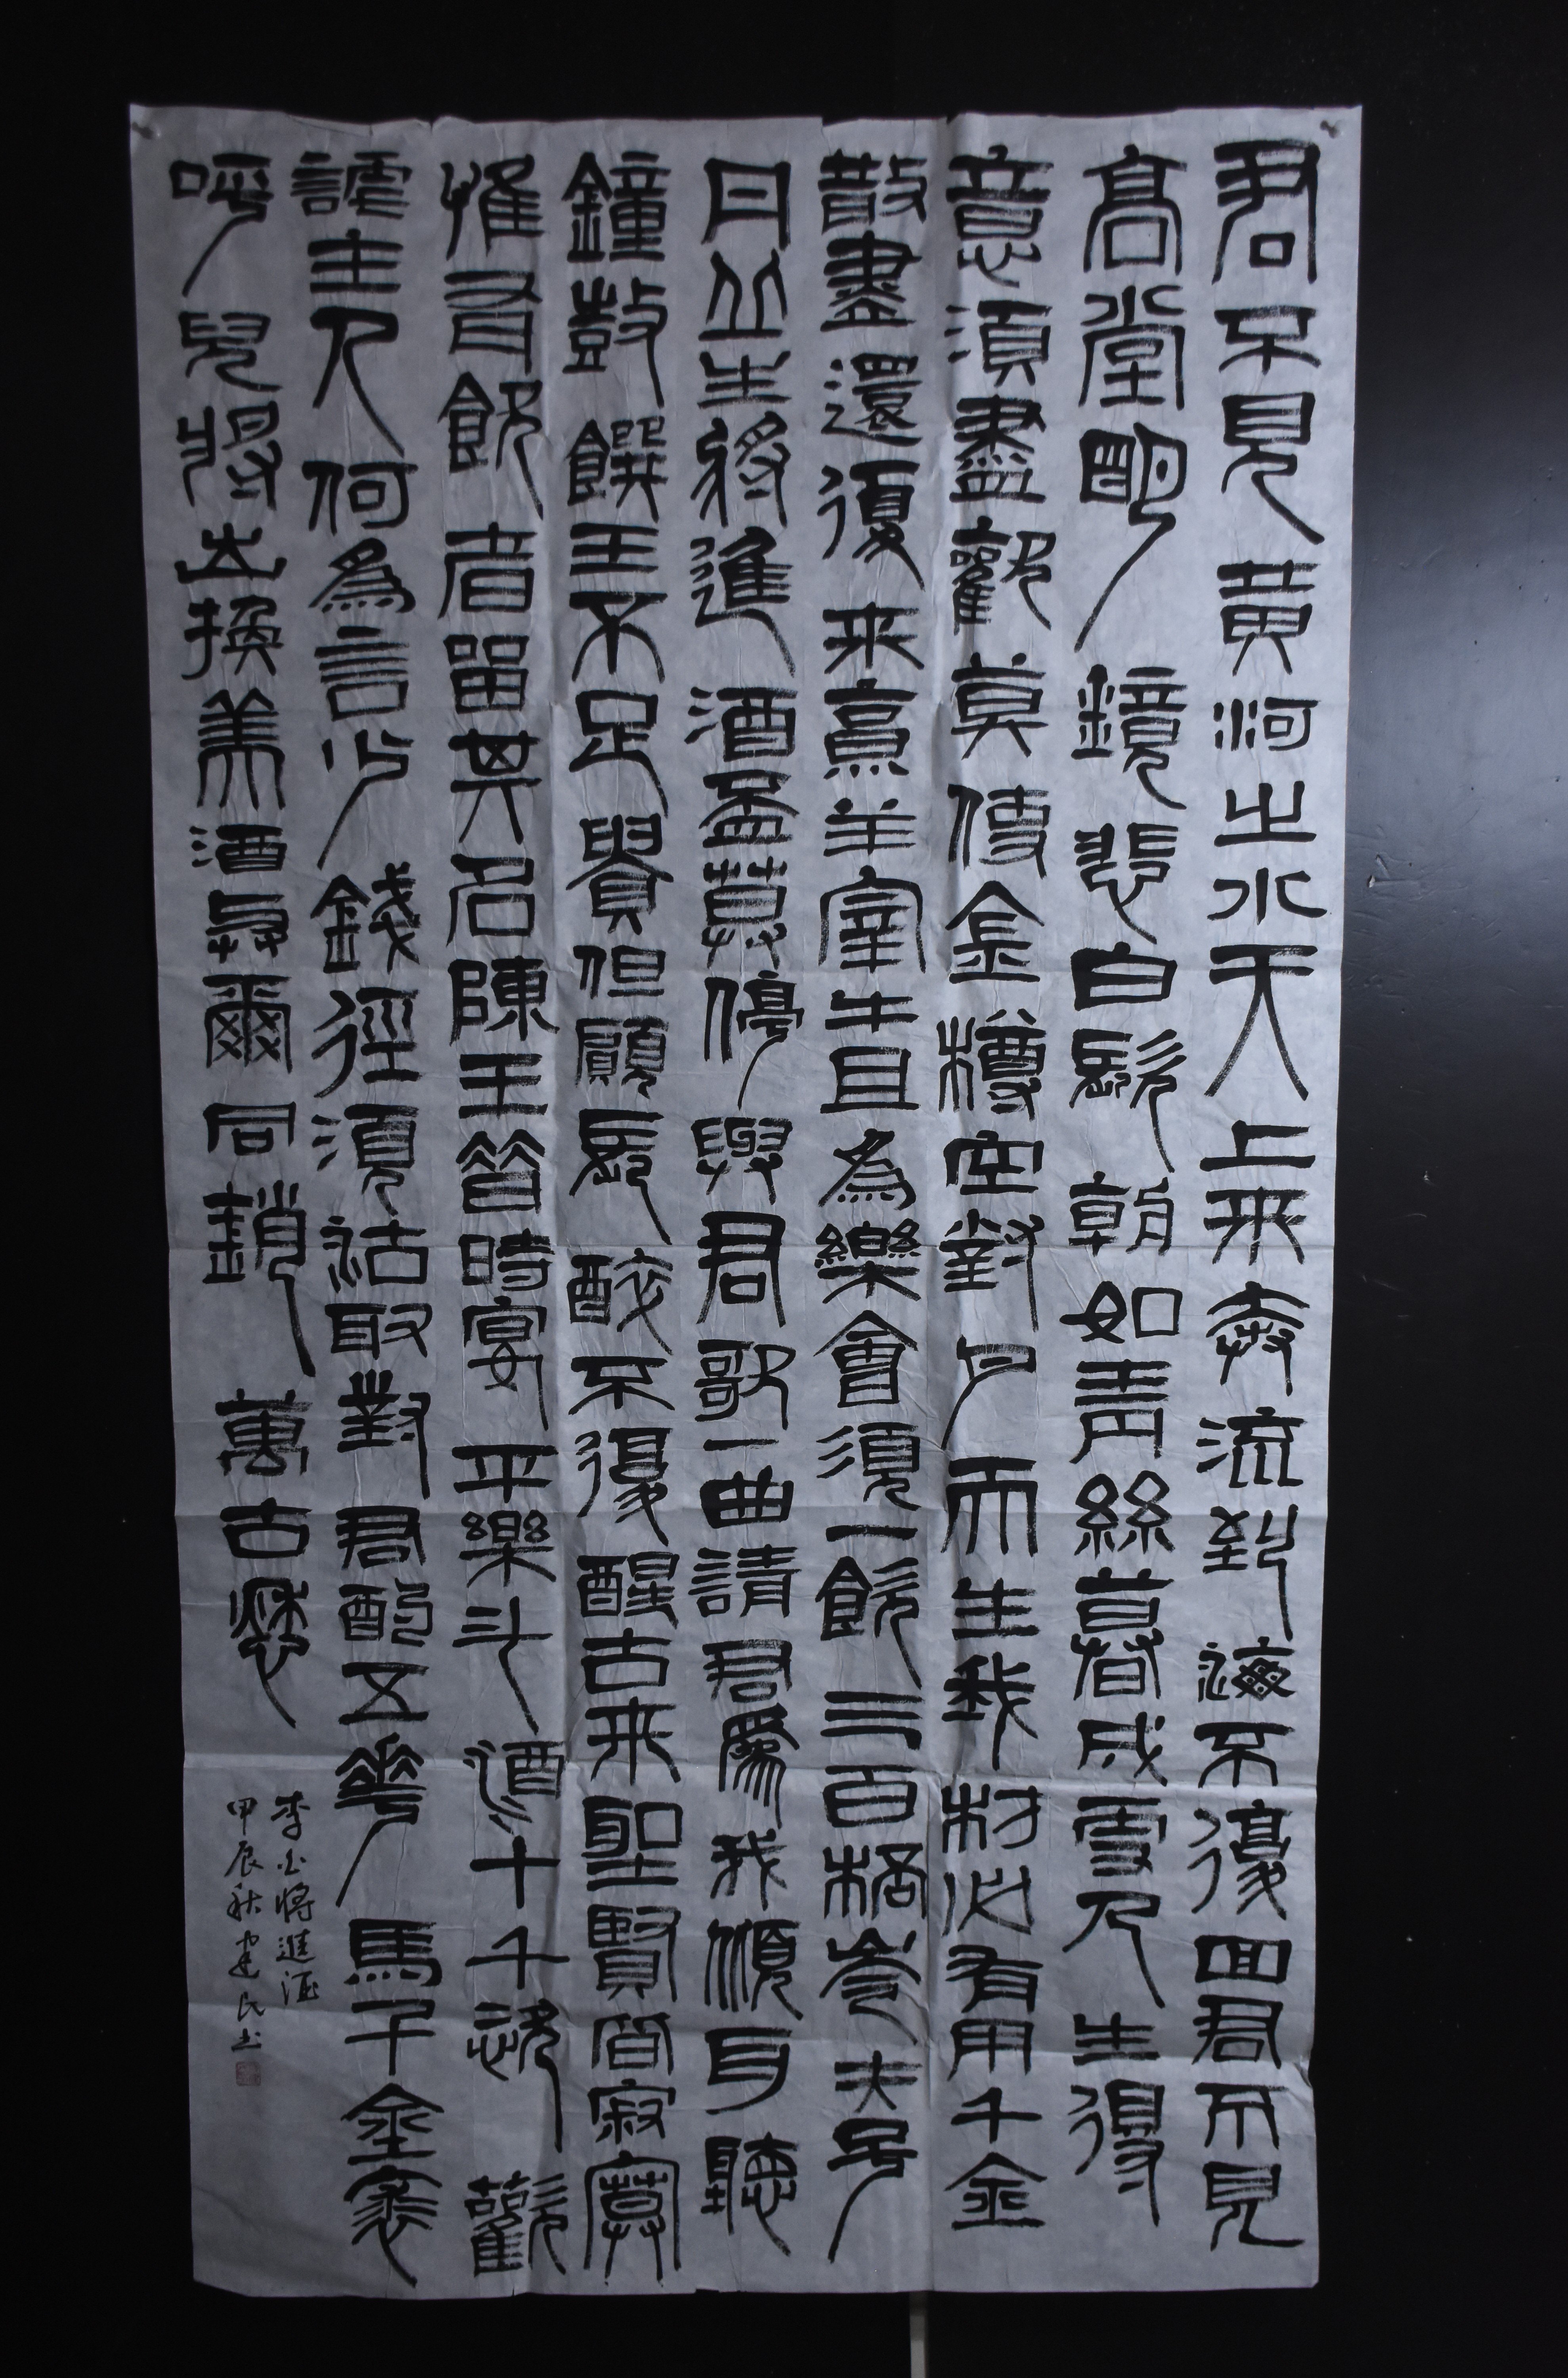 君不見黃河之水天上來奔流到海不復回君不見
高堂明鏡悲白髮朝如青絲暮成雪人生得
意須盡歡莫使金樽空對月天生我材必有用千金
散盡還復來烹羊宰牛且為樂會須一飲三百桮岑夫子
丹丘生將進酒盃莫停與君歌一曲請君為我傾耳聽
鐘鼓饌玉不足貴但願長醉不復醒古來聖賢皆寂寞
惟有飲者留其名陳王昔時宴平樂斗酒十千恣歡
謔主人何為言少錢徑須沽取對君酌五花馬千金裘
呼兒將出換美酒與爾同銷萬古愁
李白將進酒
甲辰秋建民书